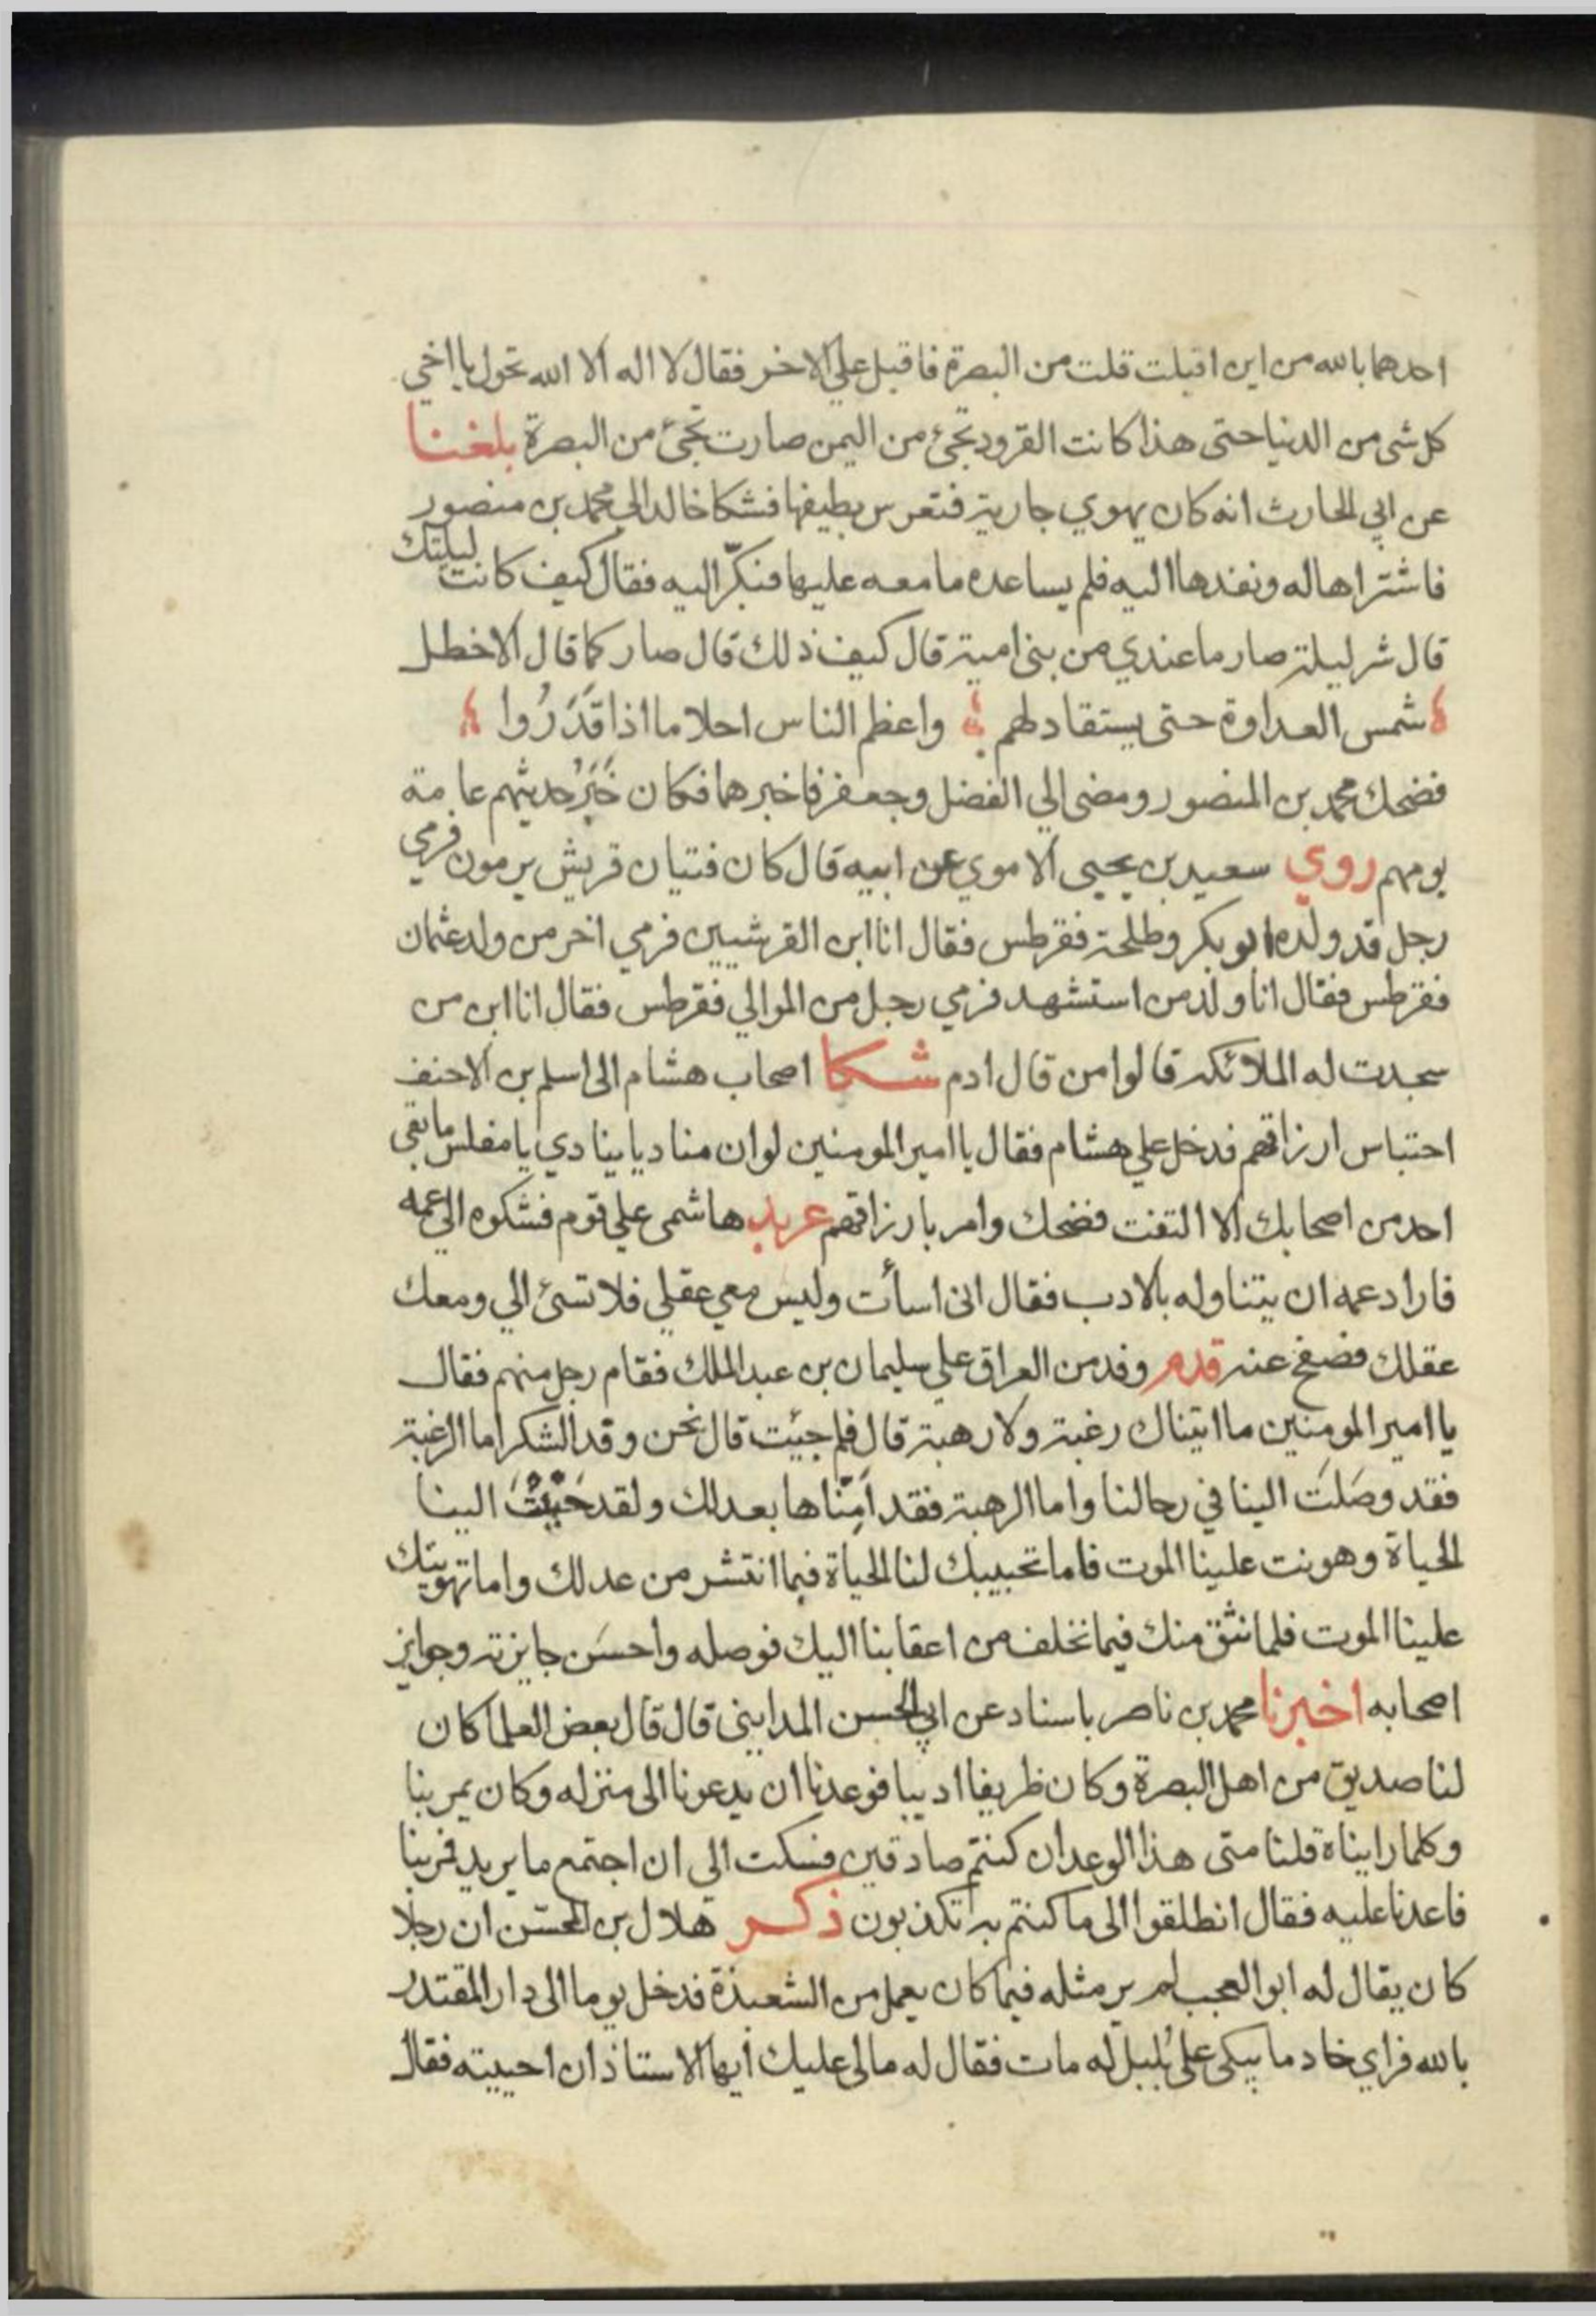 احدهما بالله من اين اقبلت قلت من البصرة فاقبل علي الاخر فقال لا اله الا الله تحول يا اخي
كل شي من الدنيا حتى هذا كانت القرود تجئ من اليمن صارت تجئ من البصرة بلغنا
عن ابي الحارث انه كان يهوي جارية فتعرس بطيفها فشكا خالد الي محمد بن منصور
فاشتراها له ونفذها اليه فلم يساعده ما معه عليها فبكّر اليه فقال كيف كانت ليلتك
قال شر ليلة صار ما عندي من بني امية قال كيف ذلك قال صار كما قال الاخطل
شمس العداوة حتى يستقاد لهم واعظم الناس احلاما اذا قَدَرُوا
فضحك محمد بن المنصور ومضى الي الفضل وجعفر فاخبرهما فكان خَبَرُ حديثهم عامة
يومهم روي سعيد بن يحيى الاموي عن ابيه قال كان فتيان قريش يرمون فرمي
رجل قد ولده ابو بكر وطلحة فقرطس فقال انا ابن القرشيين فرمي اخر من ولد عثمان
فقرطس فقال انا ولد من استشهد فرمي رجل من الموالي فقرطس فقال انا ابن من
سجدت له الملائكة قالوا من قال ادم شكا اصحاب هشام الى اسلم بن الاحنف
احتباس ارزاقهم فدخل علي هشام فقال يا امير المومنين لو ان مناديا ينادي يا مفلس ما بقي
احد من اصحابك الا التفت فضحك وامر بارزاقهم عربد هاشمى علي قوم فشكوه الي عمه
فاراد عمه ان يتناوله بالادب فقال اني اسأت وليس معي عقلي فلا تسئ الي ومعك
عقلك فصفح عنه قدم وفد من العراق علي سليمان بن عبد الملك فقام رجل منهم فقال
يا امير المومنين ما اتيناك رغبة ولا رهبة قال فلم جيئت قال نحن وفد الشكر اما الرغبة
فقد وصَلَت الينا في رحالنا واما الرهبة فقد اَمِنّاها بعدلك ولقد حَبّبْتَ الينا
الحياة وهونت علينا الموت فاما تحبيبك لنا الحياة فبما انتشر من عدلك واما تهوينك
علينا الموت فلما نثق منك فيما نخلف من اعقابنا اليك فوصله واحسَن جايزته وجوايز
اصحابه اخبرنا محمد بن ناصر باسناد عن ابي الحسن المدايني قال قال بعض العلما كان
لنا صديق من اهل البصرة وكان ظريفا اديبا فوعدنا ان يدعونا الى منزله وكان يمر بنا
وكلما رايناه قلنا متى هذا الوعد ان كنتم صادقين فسكت الي ان اجتمع ما يريد فمر بنا
فاعدنا عليه فقال انطلقوا الى ما كنتم به تكذبون ذكر هلال بن المحسّن ان رجلا
كان يقال له ابو العجب لم ير مثله فيما كان يعمل من الشعبذة فدخل يوما الى دار المقتدر
بالله فراي خادما يبكى على بُلبل له مات فقال له مالى عليك ايها الاستاذ ان احييته فقال